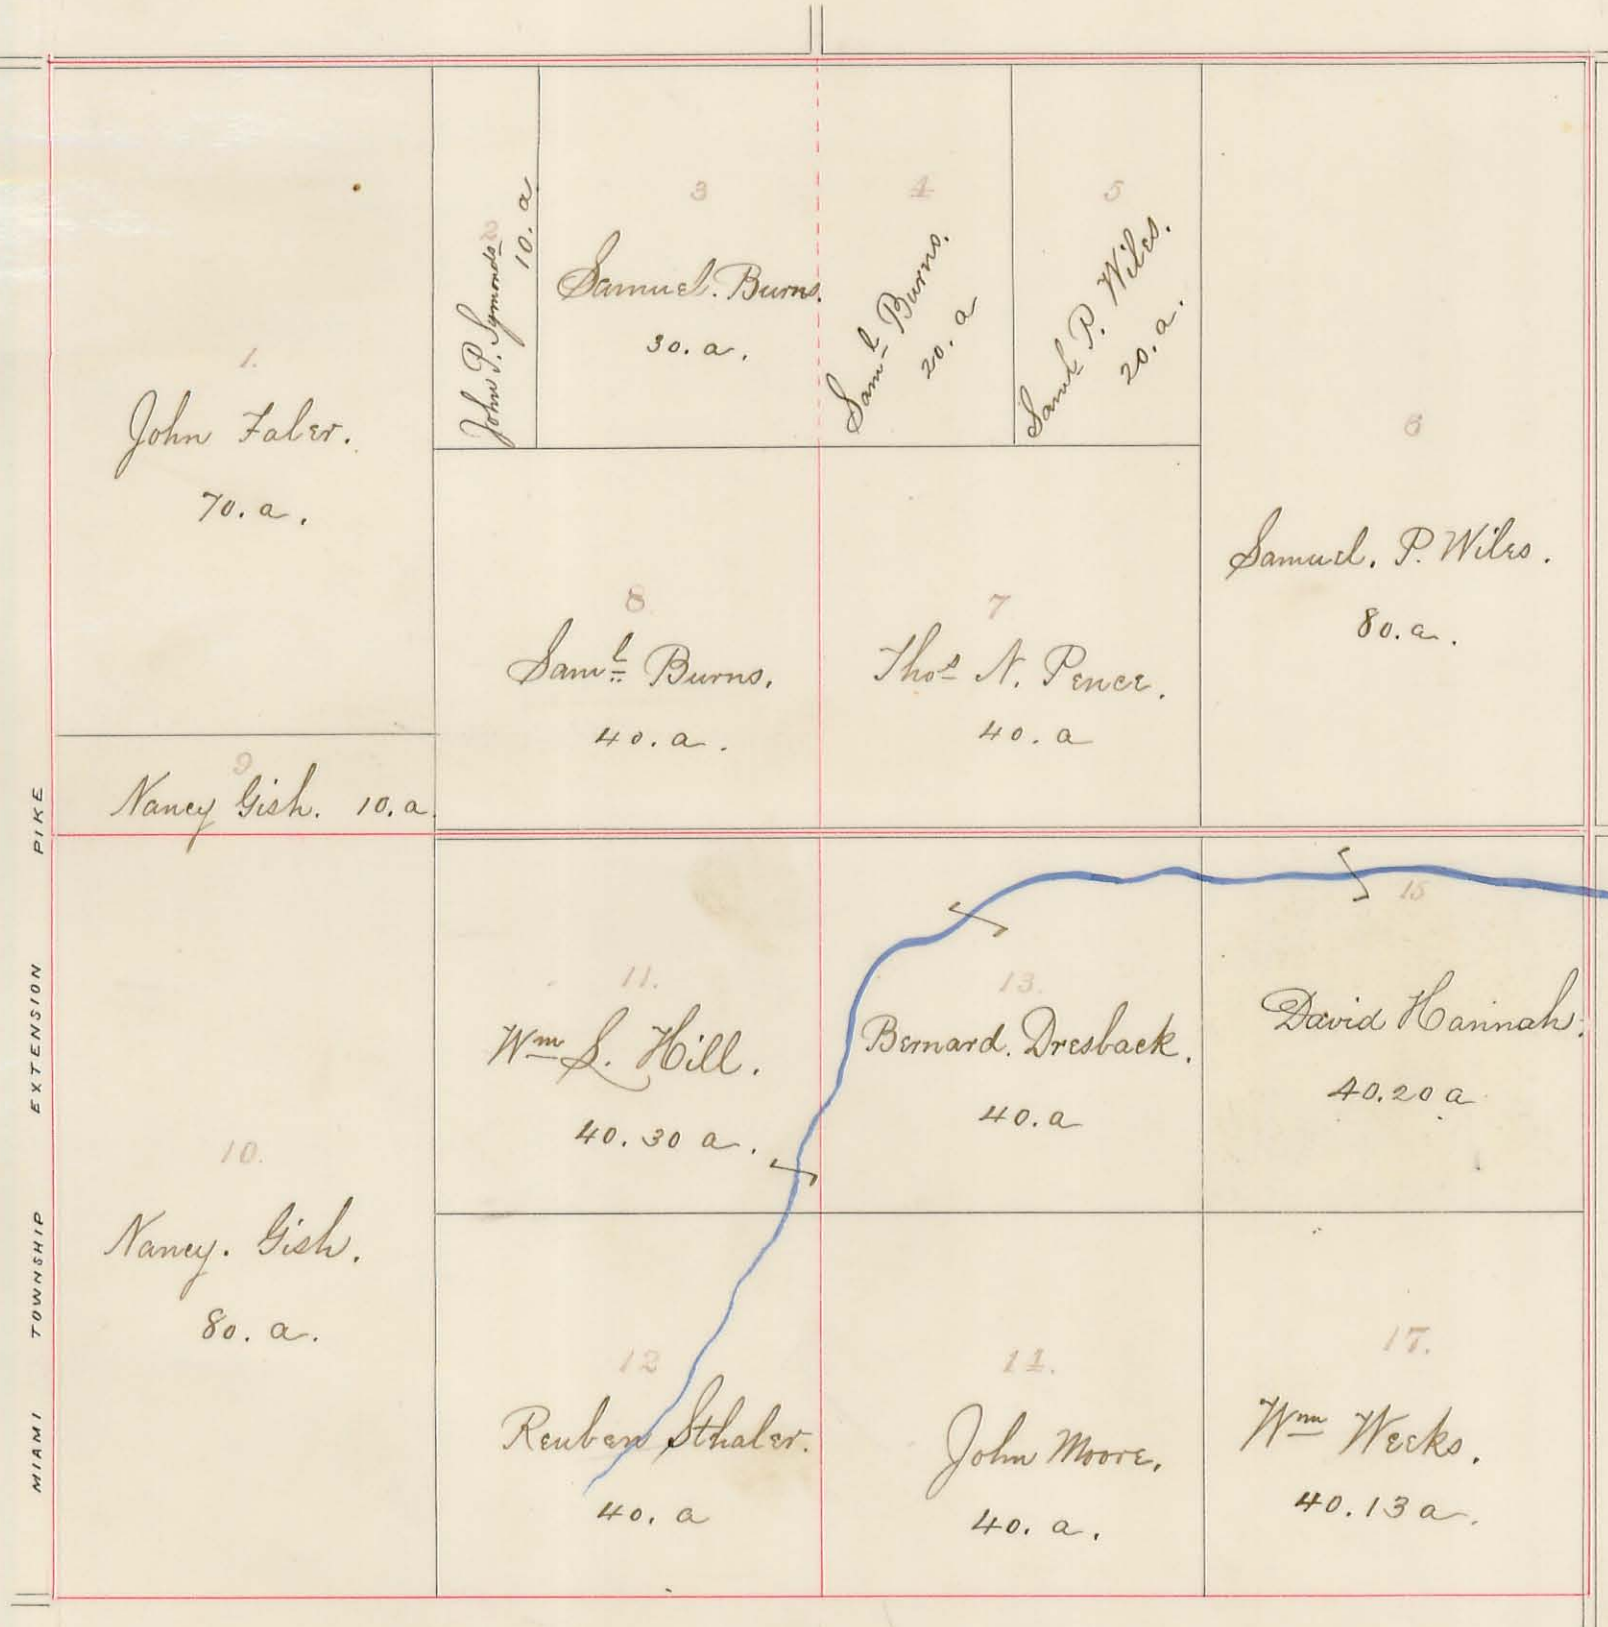 1.
John Faler.
70. a.
2
John P. Symonds
10. a
3
Samuel. Burns.
30. a.
4
Saml Burns.
20. a
5
Saml P. Wiles.
20. a.
6
Samuel. P. Wiles.
80. a.
8
Saml Burns.
40. a.
7
Thos N. Pence.
40. a
9
Nancy Gish. 10. a.
10.
Nancy. Gish.
80. a.
11.
Wm S. Hill.
40. 30 a.
13.
Bernard. Dresback.
40. a
15
David Hannah.
40.20 a
12
Reuben Sthaler.
40. a
14.
John Moore.
40. a.
17.
Wm Weeks.
40.13 a.
MIAMI TOWNSHIP EXTENSION PIKE